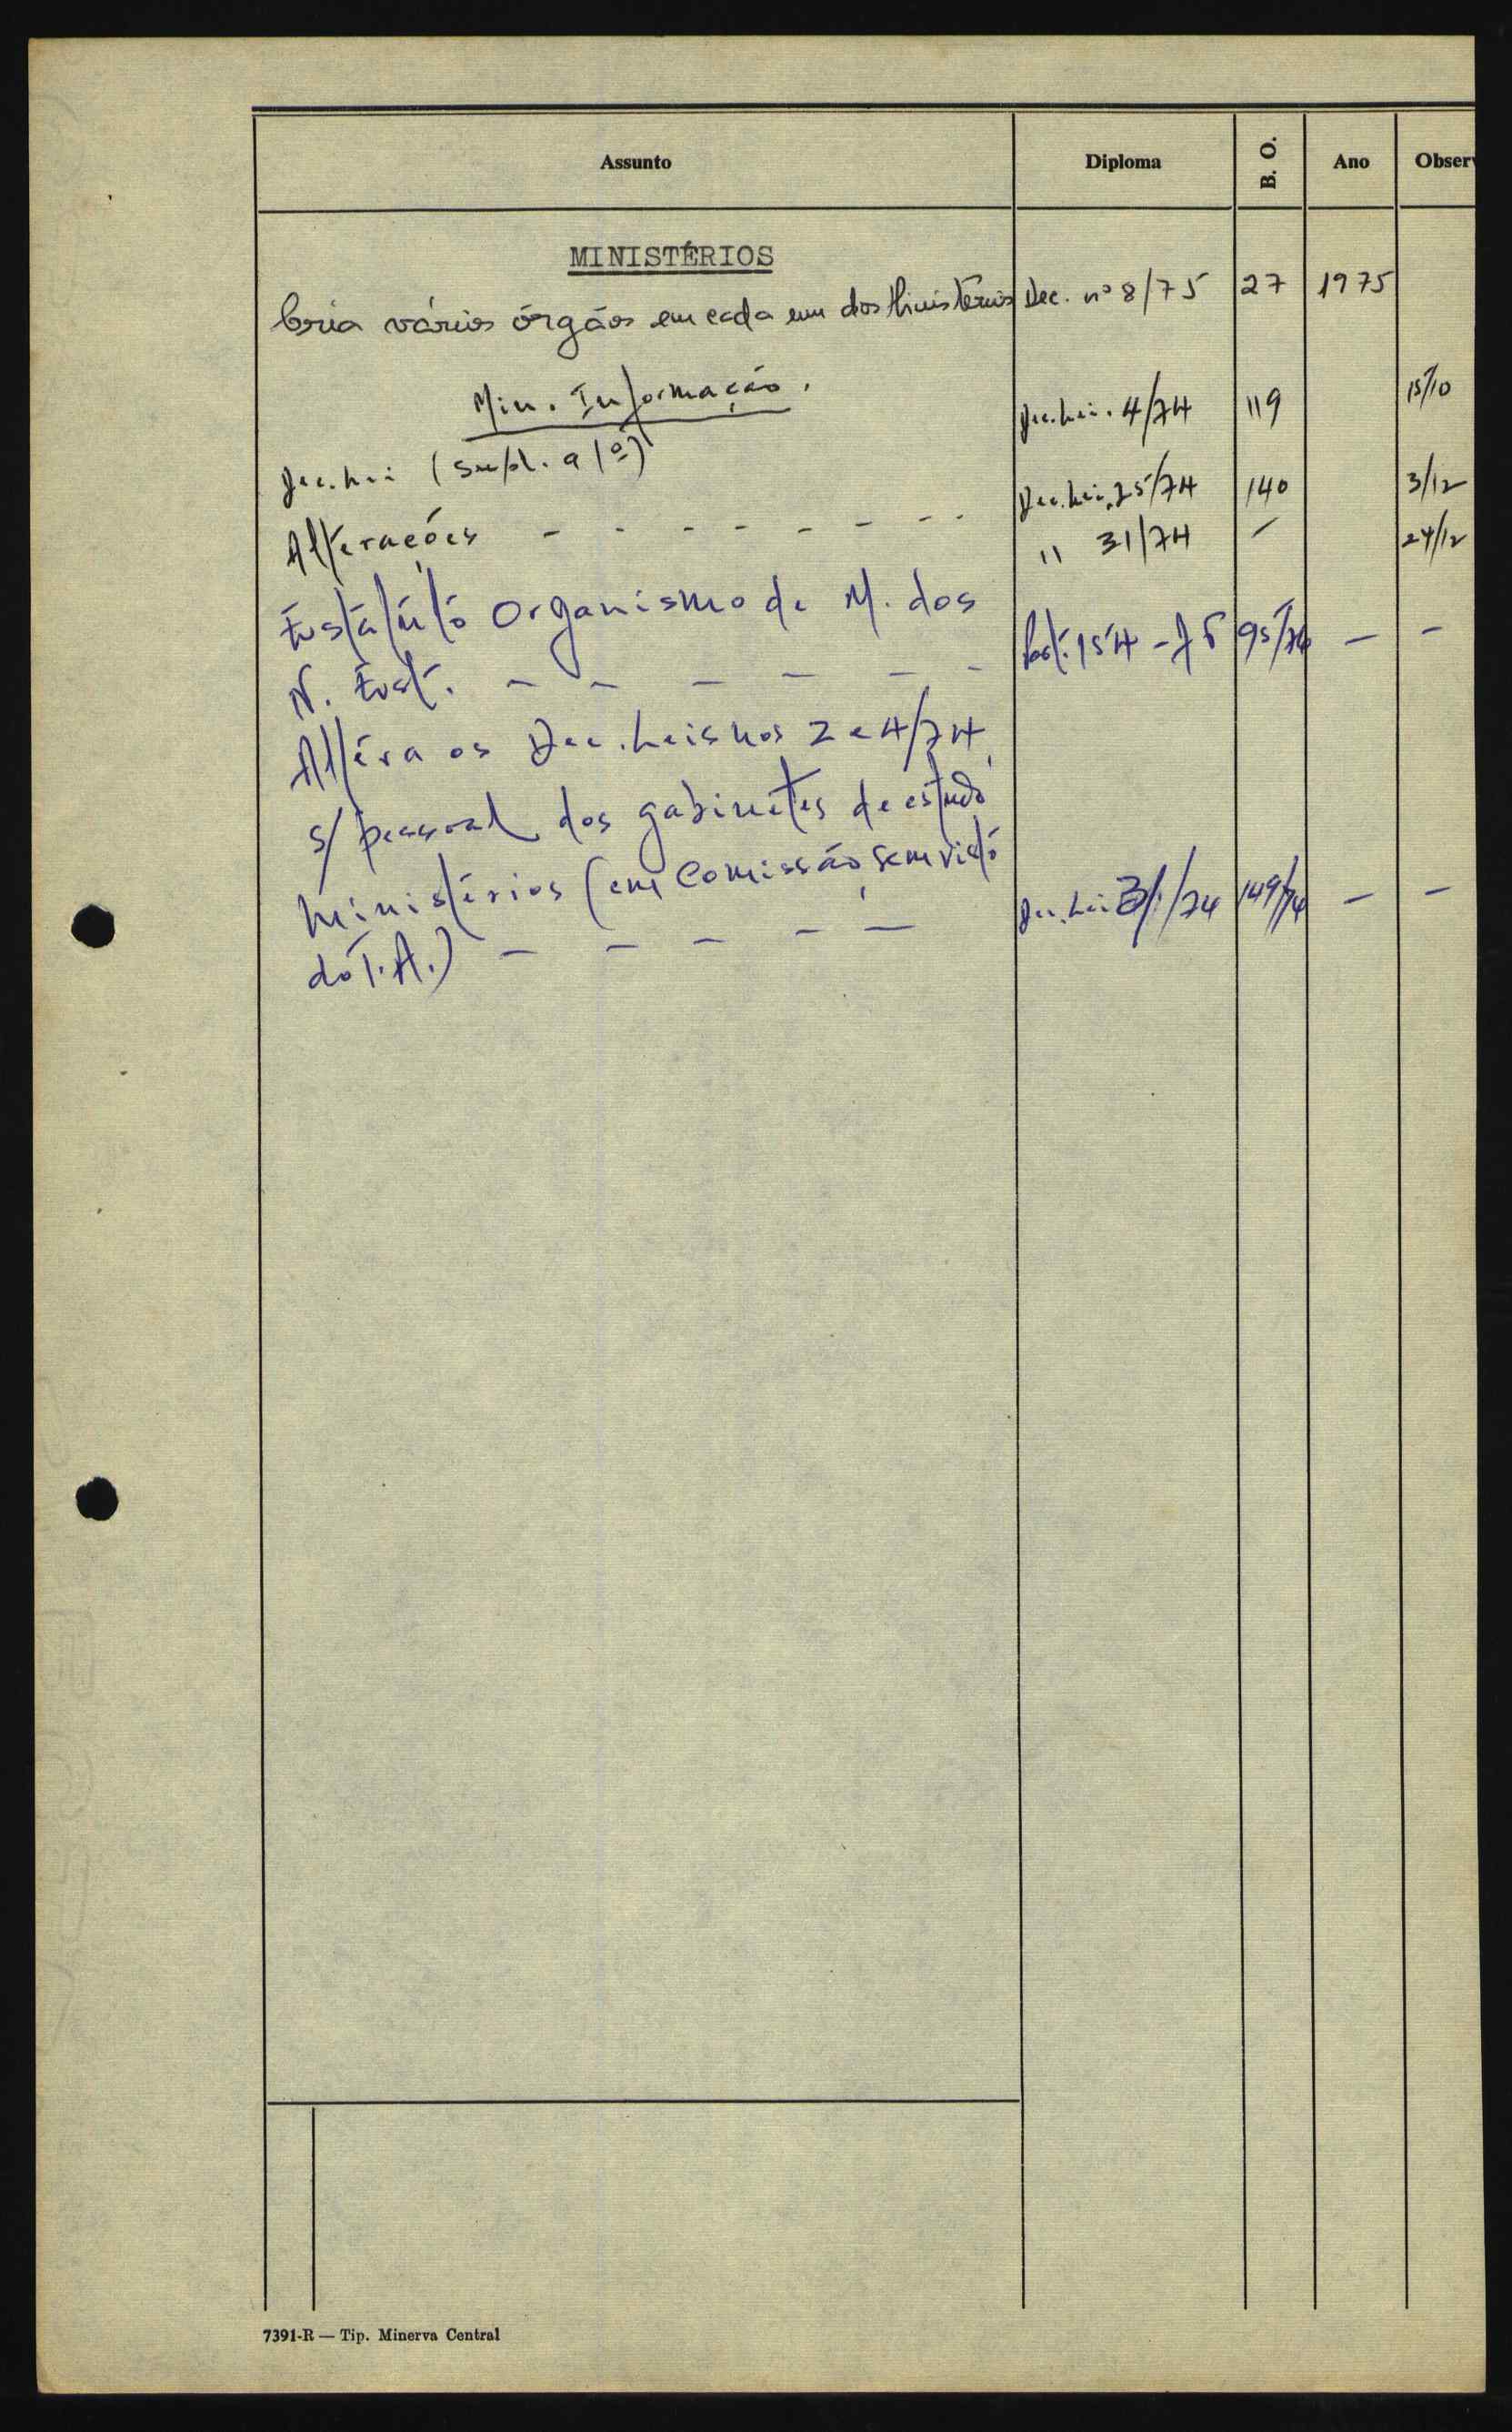 Assunto Diploma B. O. Ano Obser
MINISTÉRIOS
Cria vários órgãos em cada um dos Ministérios Dec. nº 8/75 27 1975
Min. Informação.
Dec. Lei. 4/74 119 15/10
Dec. Lei (Supl. a 1º)
Dec. Lei. 25/74 140 3/12
Alterações - - - - - - - -
" 31/74 - 24/12
Estatúto Organismo de M. dos
N. Est. - - - - - - 154 - 95/76 - -
Altéra os Dec. Leis nos 2 e 4/74
s/ pessoal dos gabinetes de estudo
Ministérios (em Comissão, sem visto
do T. A.) - - - - - Dec. Lei 31/74 149/74 - -
7391-R — Tip. Minerva Central